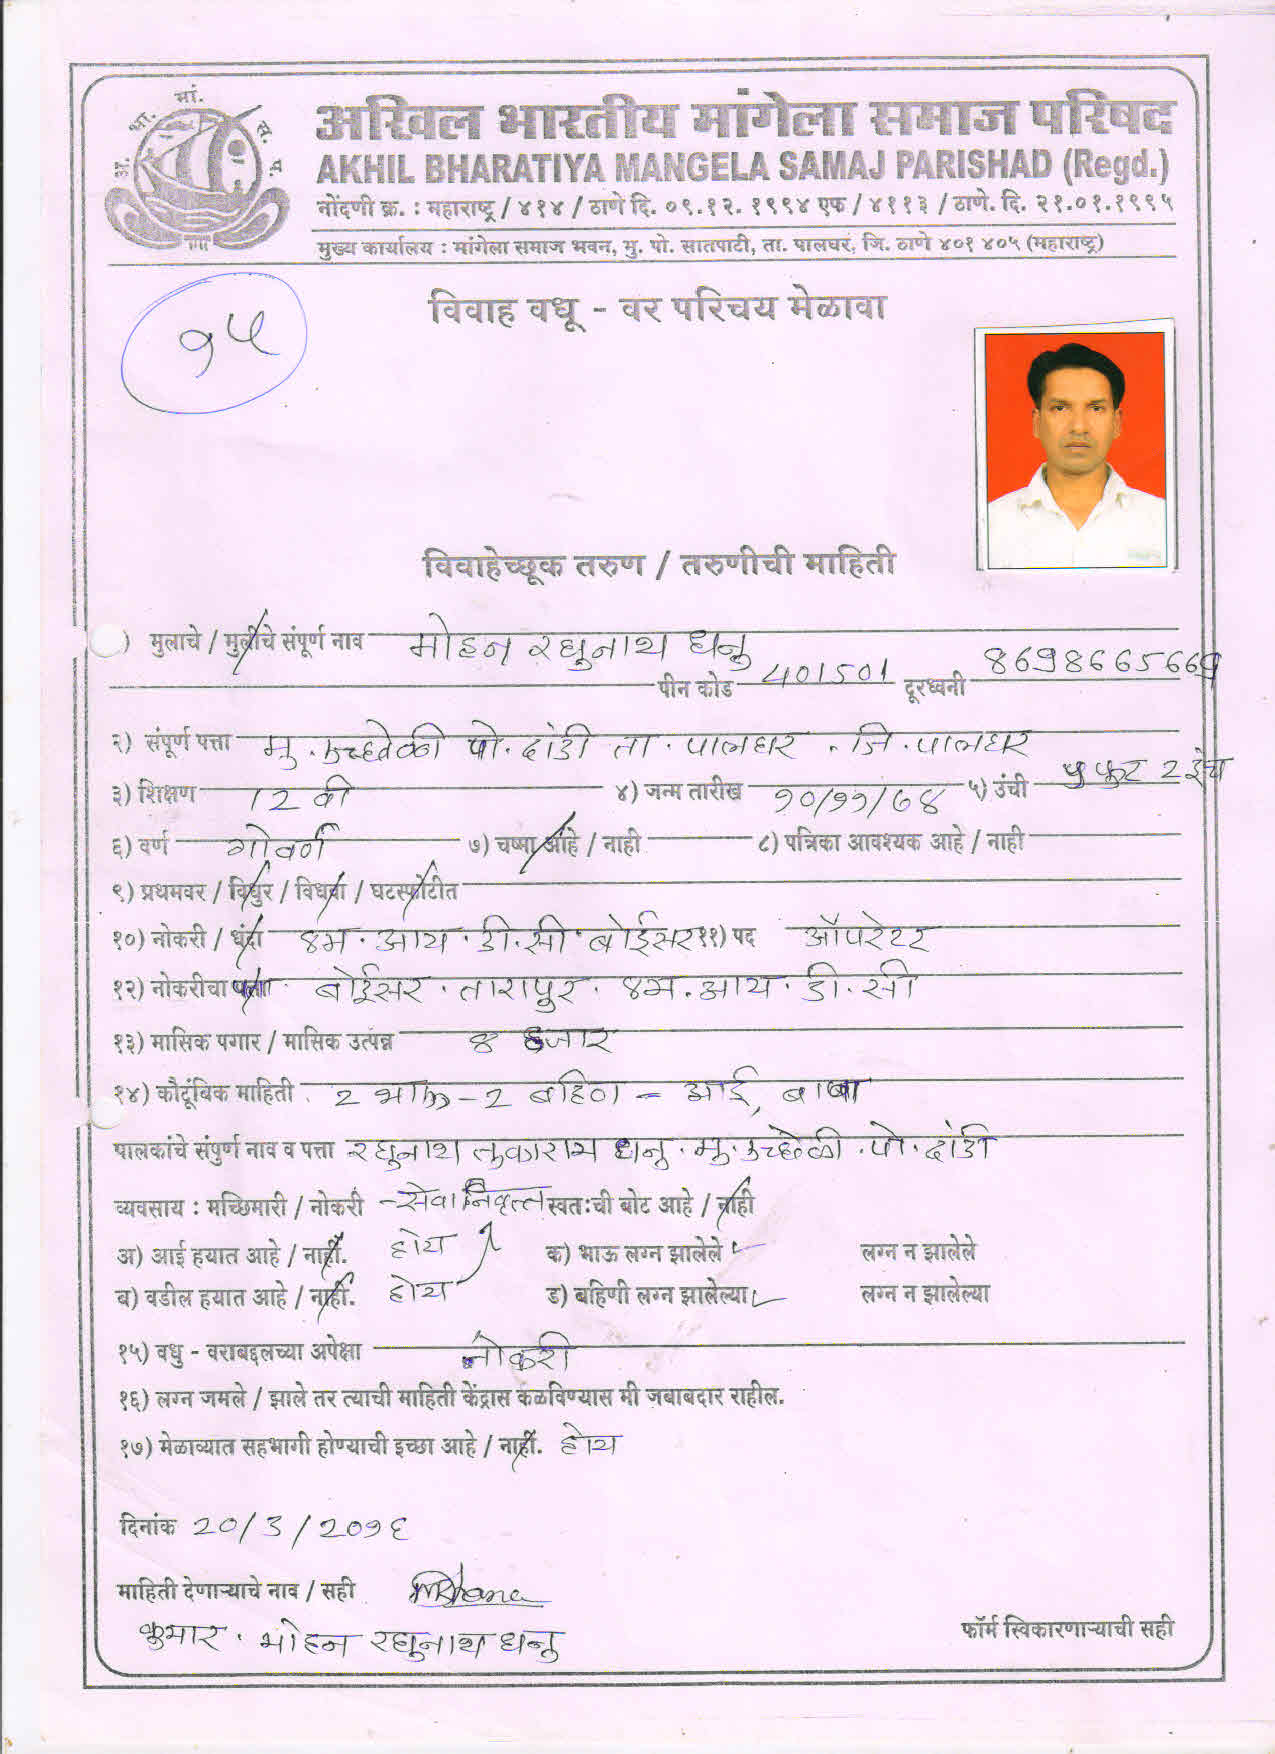 अ. भा. मां. स. प.
अखिल भारतीय मांगेला समाज परिषद
AKHIL BHARATIYA MANGELA SAMAJ PARISHAD (Regd.)
नोंदणी क्र. : महाराष्ट्र / ४१४ / ठाणे दि. ०९.१२. १९९४ एफ / ४११३ / ठाणे. दि. २१.०१.१९९५
मुख्य कार्यालय : मांगेला समाज भवन, मु. पो. सातपाटी, ता. पालघर, जि. ठाणे ४०१ ४०५ (महाराष्ट्र)
१५
विवाह वधू - वर परिचय मेळावा
विवाहेच्छूक तरुण / तरुणीची माहिती
) मुलाचे / मुलीचे संपूर्ण नाव मोहन रघुनाथ धनु
पीन कोड 401501 दूरध्वनी 8698665669
२) संपूर्ण पत्ता मु. पो. दांडी ता. पालघर. जि. पालघर
३) शिक्षण 12 वी ४) जन्म तारीख १०/११/७४ ५) उंची ५ फुट 2 इंच
६) वर्ण गोवर्ण ७) चष्मा आहे / नाही ८) पत्रिका आवश्यक आहे / नाही
९) प्रथमवर / विधुर / विधवा / घटस्फोटीत
१०) नोकरी / धंदा एम. आय. डी. सी. बोईसर ११) पद ऑपरेटर
१२) नोकरीचा पत्ता बोईसर. तारापुर. एम. आय. डी. सी
१३) मासिक पगार / मासिक उत्पन्न ४ हजार
१४) कौटूंबिक माहिती 2 भाऊ - 2 बहिण - आई, बाबा
पालकांचे संपुर्ण नाव व पत्ता रघुनाथ तुकाराम धनु. मु. पो. दांडी
व्यवसाय : मच्छिमारी / नोकरी - सेवानिवृत्त स्वतःची बोट आहे / नाही
अ) आई हयात आहे / नाही. होय क) भाऊ लग्न झालेले ✓ लग्न न झालेले
ब) वडील हयात आहे / नाही. होय ड) बहिणी लग्न झालेल्या ✓ लग्न न झालेल्या
१५) वधु - वराबद्दलच्या अपेक्षा नोकरी
१६) लग्न जमले / झाले तर त्याची माहिती केंद्रास कळविण्यास मी जबाबदार राहील.
१७) मेळाव्यात सहभागी होण्याची इच्छा आहे / नाही. होय
दिनांक 20/3/2०१६
माहिती देणाऱ्याचे नाव / सही
कुमार. मोहन रघुनाथ धनु
फॉर्म स्विकारणाऱ्याची सही